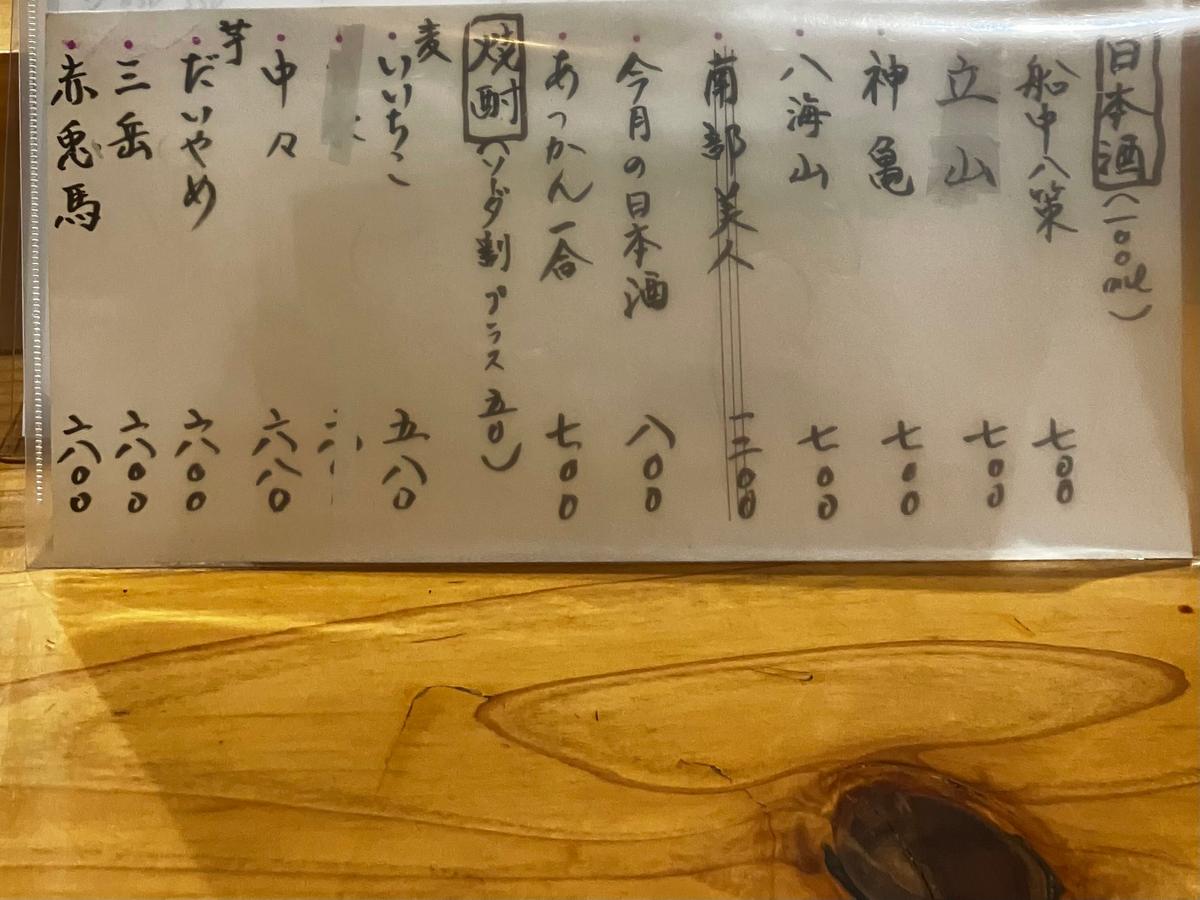 日本酒(一〇〇ml)
船中八策 七〇〇
立山 七〇〇
神亀 七〇〇
八海山 七〇〇
南部美人 一三〇〇
今月の日本酒 八〇〇
あつかん一合 七〇〇
焼酎(ソダ割プラス五〇)
麦
いいちこ 五八〇
中々 六八〇
芋
だいやめ 六八〇〇
三岳 六八〇〇
赤兎馬 六八〇〇